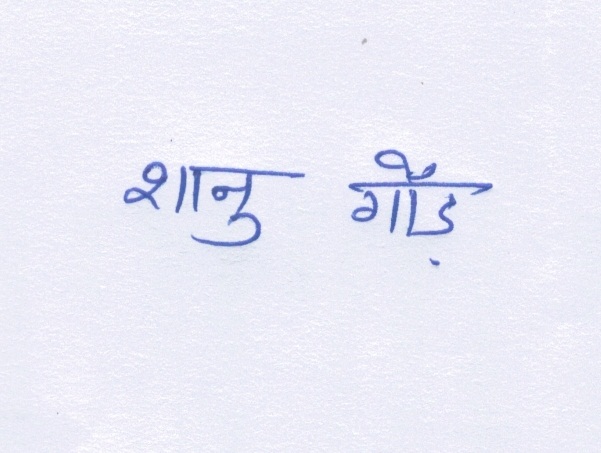 शानु गौड़